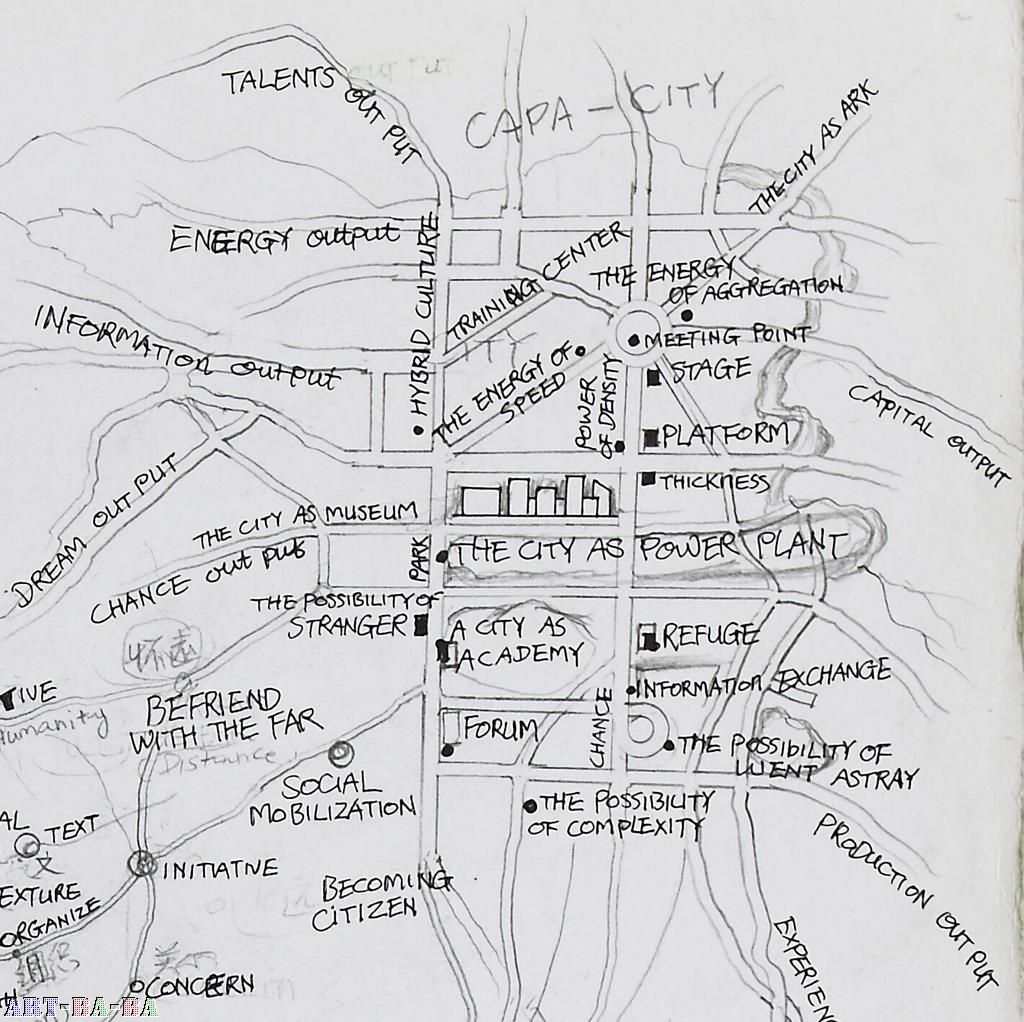 TALENTS OUT PUT
CAPA-CITY
THE CITY AS ARK
ENERGY output
HYBRID CULTURE
TRAINING CENTER
THE ENERGY
OF AGGREGATION
MEETING POINT
INFORMATION output
THE ENERGY OF
SPEED
POWER
OF DENSITY
STAGE
PLATFORM
THICKNESS
CAPITAL OUTPUT
DREAM OUT PUT
THE CITY AS MUSEUM
CHANCE out put
PARK
THE CITY AS POWER PLANT
THE POSSIBILITY OF
STRANGER
A CITY AS
ACADEMY
REFUGE
INFORMATION EXCHANGE
怀远
TIVE
Humanity
BEFRIEND
WITH THE FAR
Distance
FORUM
CHANCE
THE POSSIBILITY OF
WENT ASTRAY
SOCIAL
MOBILIZATION
THE POSSIBILITY
OF COMPLEXITY
PRODUCTION OUT PUT
AL
TEXT
文
INITIATIVE
EXTURE
ORGANIZE
组织
BECOMING
CITIZEN
CONCERN
EXPERIEN
ART-BA-BA